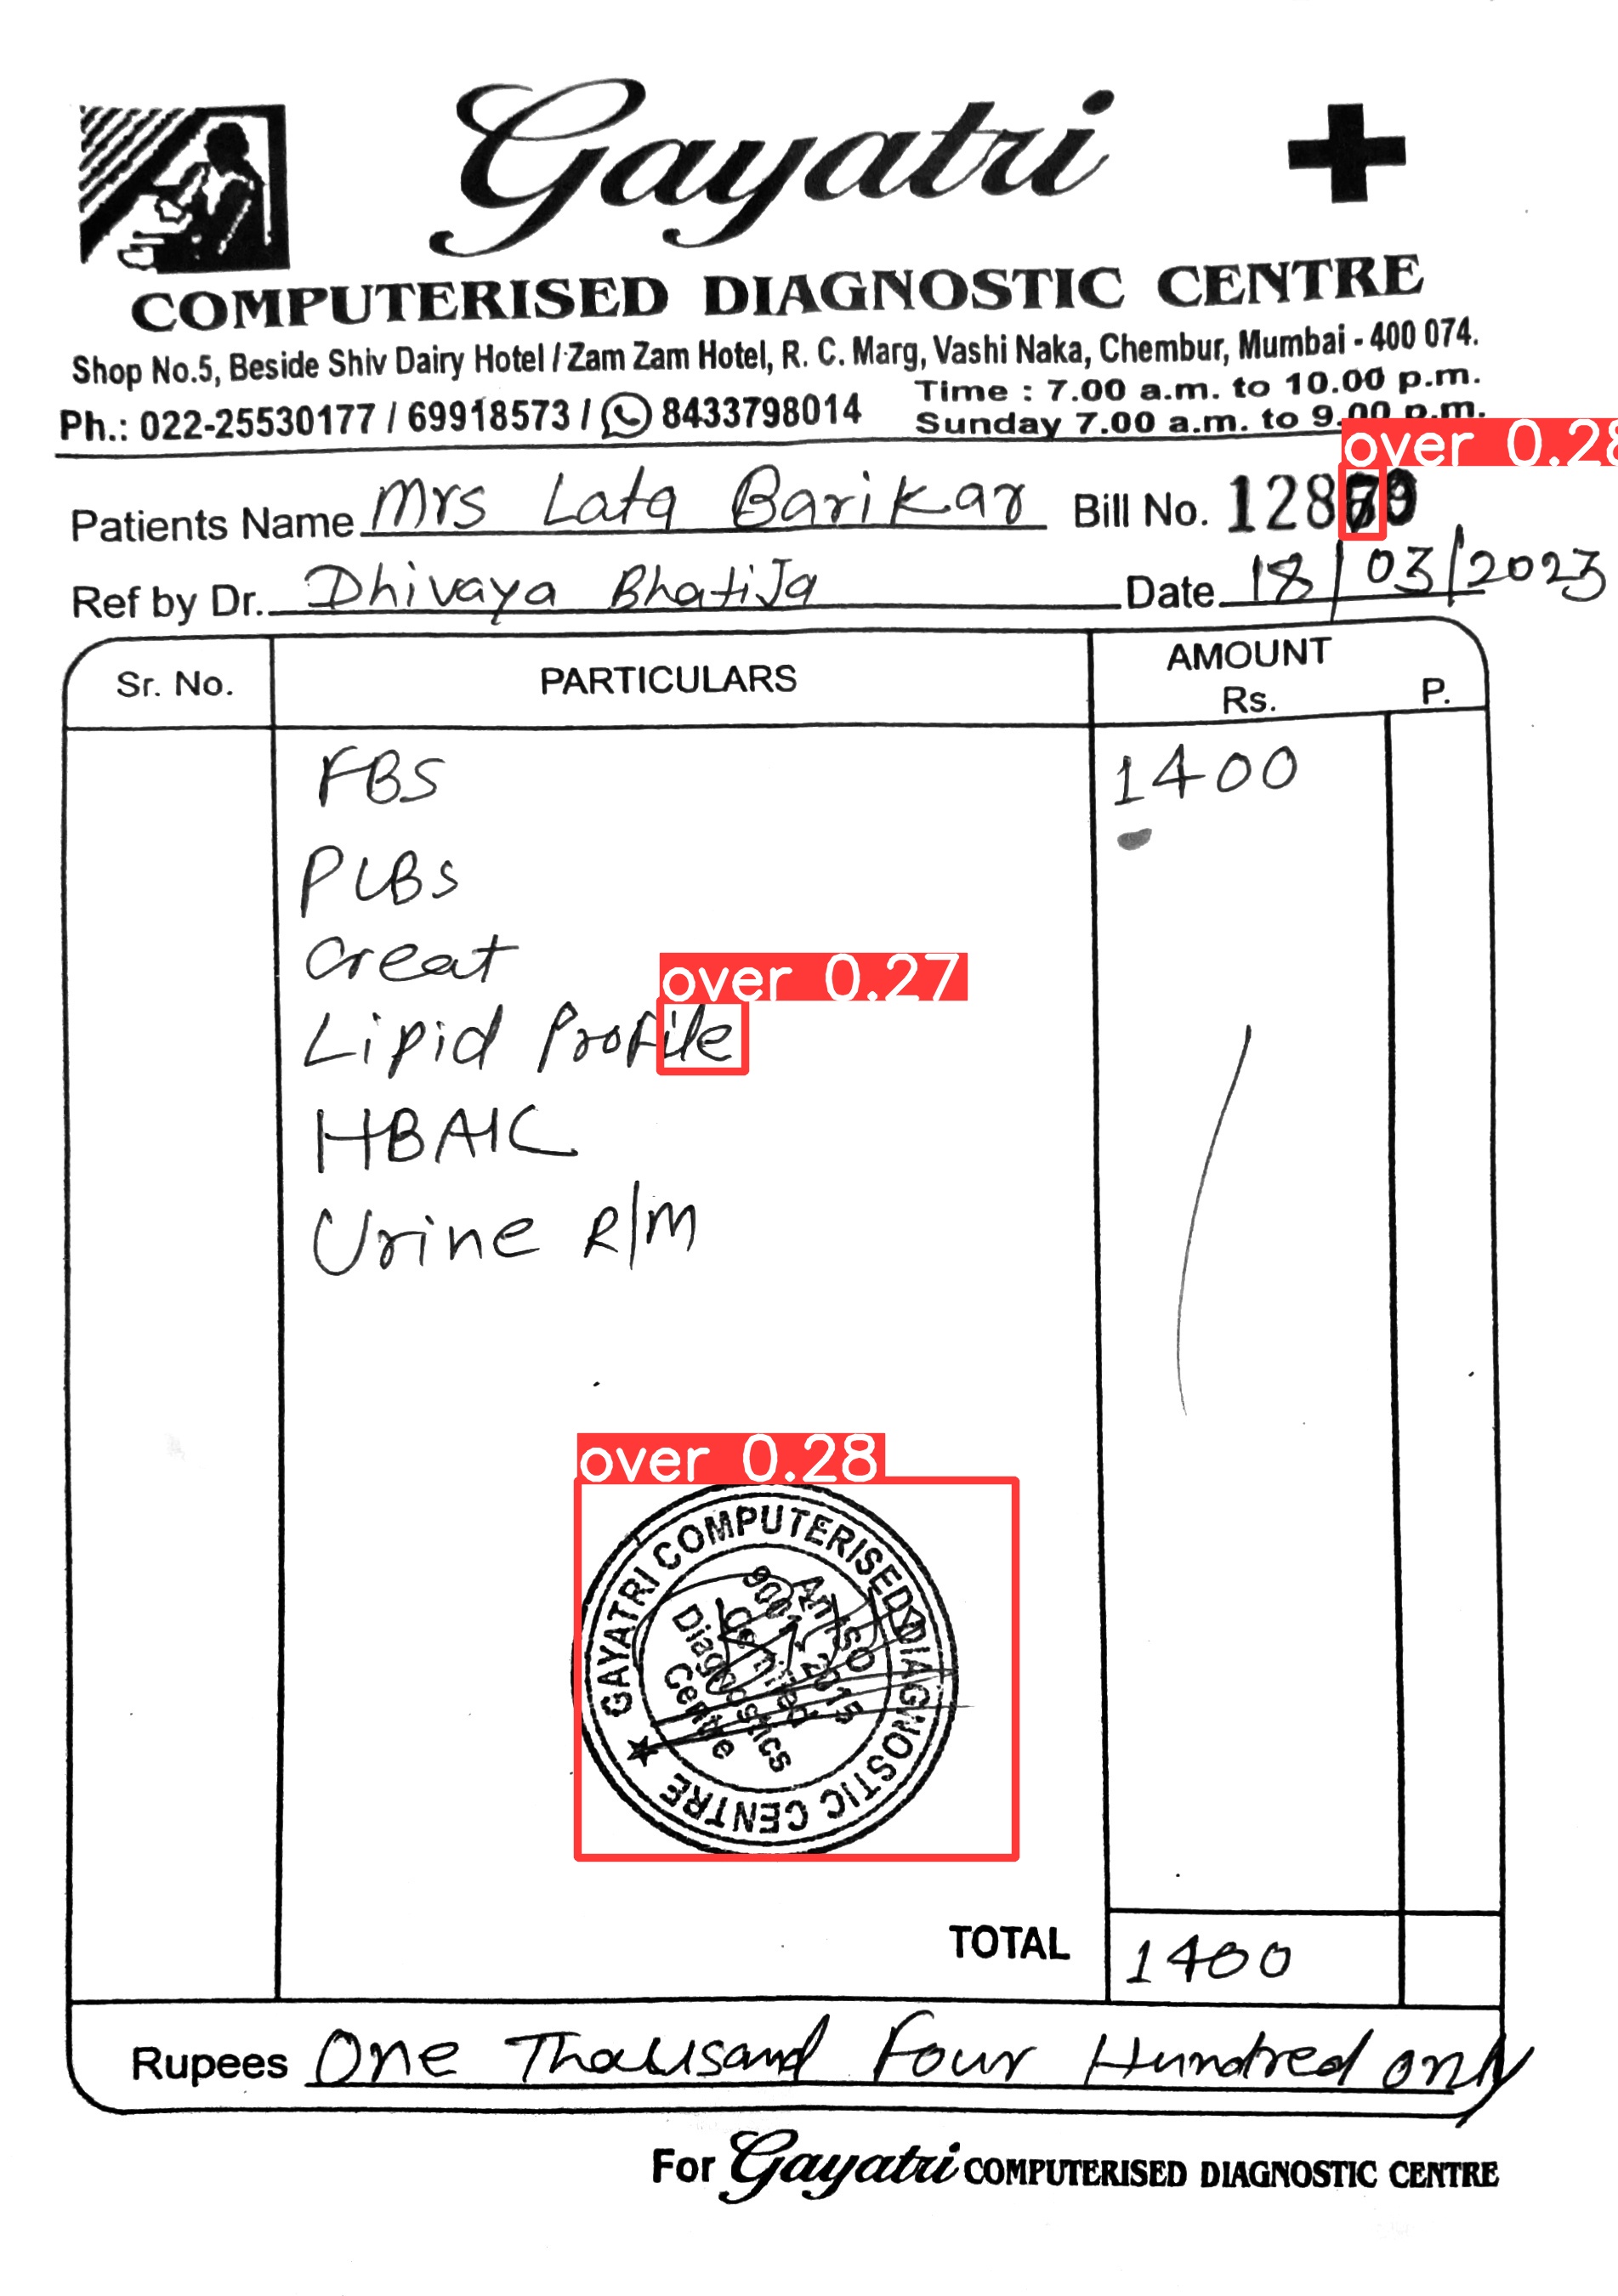 Gayatri
COMPUTERISED DIAGNOSTIC CENTRE
Shop No.5, Beside Shiv Dairy Hotel / Zam Zam Hotel, R. C. Marg, Vashi Naka, Chembur, Mumbai - 400 074.
Time : 7.00 a.m. to 10.00 p.m.
Ph.: 022-25530177 / 69918573 / 8433798014
Sunday 7.00 a.m. to 9.00 p.m.
over 0.28
Patients Name Mrs Lata Barikar Bill No.
Ref by Dr. Dhivaya Bhatija Date 18/03/2023
Sr. No. PARTICULARS AMOUNT Rs. P.
FBS 1400
PLBS
Creat
over 0.27
Lipid Profile
HBA1C
Urine R/M
over 0.28
GAYATRI COMPUTERISED DIAGNOSTIC CENTRE
An ISO
9001:2015
Certified
Diagnostics
Centre
TOTAL 1400
Rupees One Thousand Four Hundred only
For Gayatri COMPUTERISED DIAGNOSTIC CENTRE